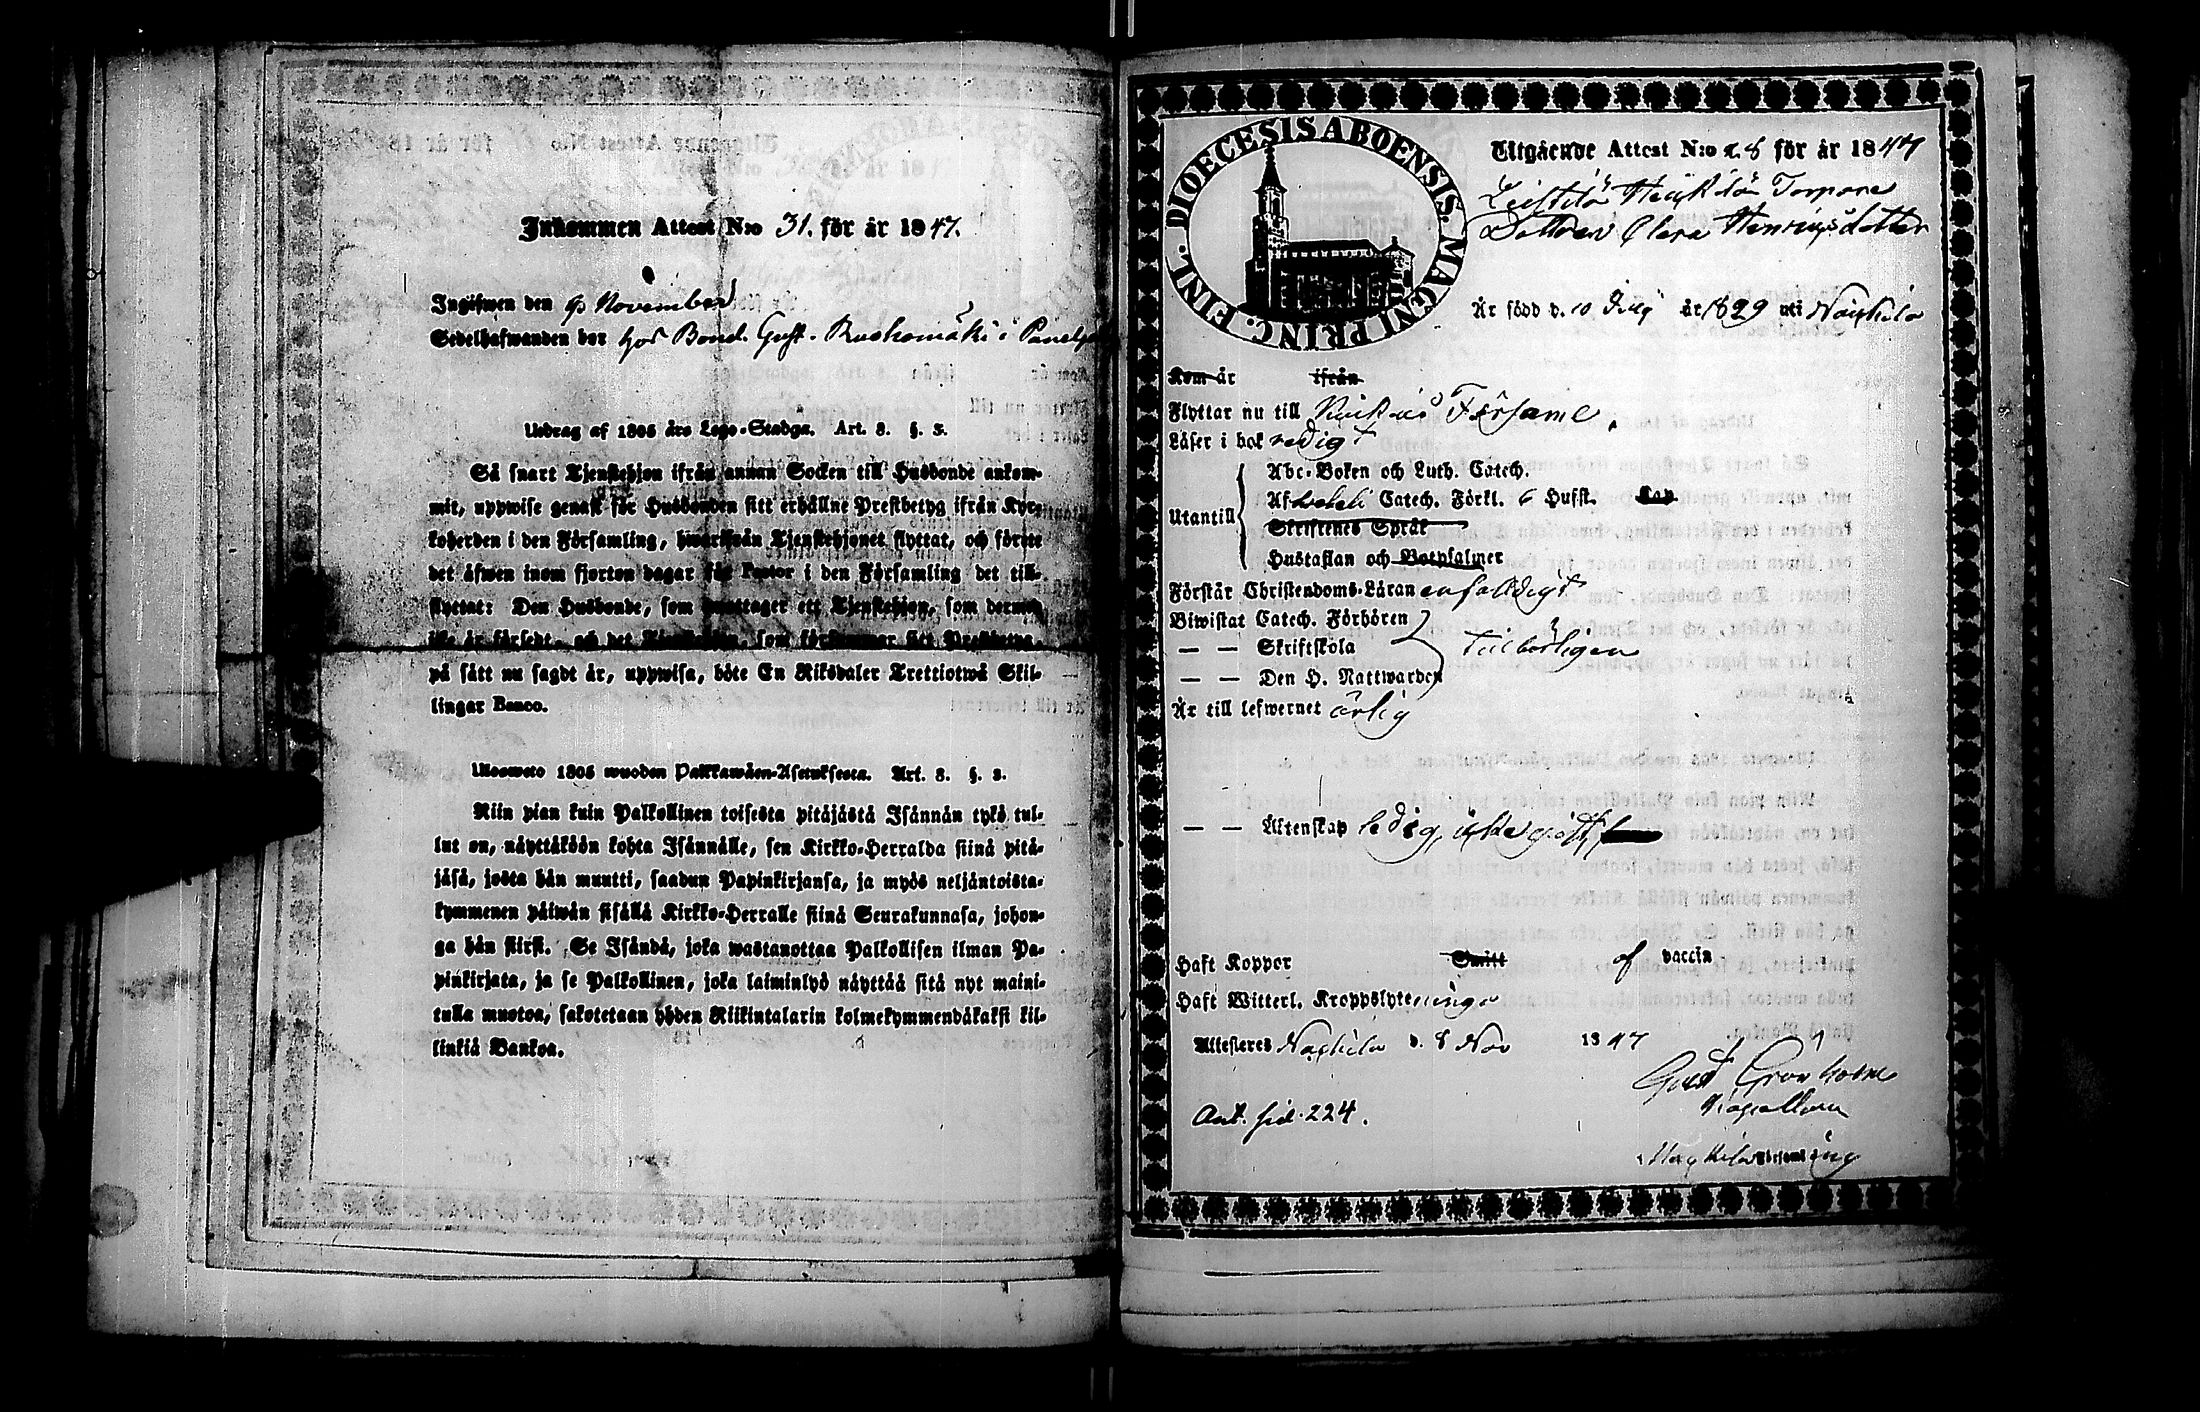 Inkommen Attest N:o 31. för år 1847.
Ingifwen den 9 November
Sedelhafwanden bor hos Bond. Gust. Ruohomäki i Panelia
Utdrag af 1805 års Lego-Stadga. Art. 8. §. 3.
Så snart Tjenstehjon ifrån annan Socken till Husbonde ankom-
mit, uppwise genast för Husbonden sitt erhållne Prestbetyg ifrån Kyr-
koherden i den Församling, hwarifrån Tjenstehjonet flyttat, och förete
det äfwen inom fjorton dagar för Pastor i den Församling det till-
flyttat: Den Husbonde, som emottager ett Tjenstehjon, som dermed
icke är försedt, och det Tjenstehjon, som försummar sitt Prestbetyg,
på sätt nu sagdt är, uppwisa, böte En Riksdaler Trettiotwå Skil-
lingar Banco.
Ulosweto 1805 wuoden Palkkawäen-Asetuksesta. Art. 8. §. 3.
Niin pian kuin Palkollinen toisesta pitäjästä Isännän tykö tul-
lut on, näyttäköön kohta Isännälle, sen Kirkko-Herralda siinä pitä-
jäsä, josta hän muutti, saadun Papinkirjansa, ja myös neljäntoista-
kymmenen päiwän sisällä Kirkko-Herralle siinä Seurakunnasa, johon-
ga hän siirsi. Se Isändä, joka wastanottaa Palkollisen ilman Pa-
pinkirjata, ja se Palkollinen, joka laiminlyö näyttää sitä nyt maini-
tulla muotoa, sakotetaan yhden Riikintalarin kolmekymmendäkaksi kil-
linkiä Bankoa.
DIOECESIS ABOENSIS. MAGNI PRINC. FINL.
Utgående Attest N:o 28 för år 1847
Leistilä Heikilä Torpare
Dottren Clara Henricsdotter
Är född d. 10 July år 1829 uti Nackila
Kom år ifrån
Flyttar nu till Kiukais Församl.
Läser i bok redigt
Utantill
Abc-Boken och Luth. Catech.
Af Catech. Förkl. 6 Hufst. Kap
Skriftenes Språk
Hustaflan och Botpsalmer
Förstår Christendoms-Läran enfalldigt
Biwistat Catech. Förhören
— — Skriftskola tillbörligen
— — Den H. Nattwarden
Är till lefwernet ärlig
— — Äktenskap ledig,
Haft Koppor Smitt af vaccin
Haft Witterl. Kroppslyte inga
Attesteres Nackila d. 8 Nov 1847
Gust Grönholm
Kapellan
Ant. sid. 224.
Nackila Församling